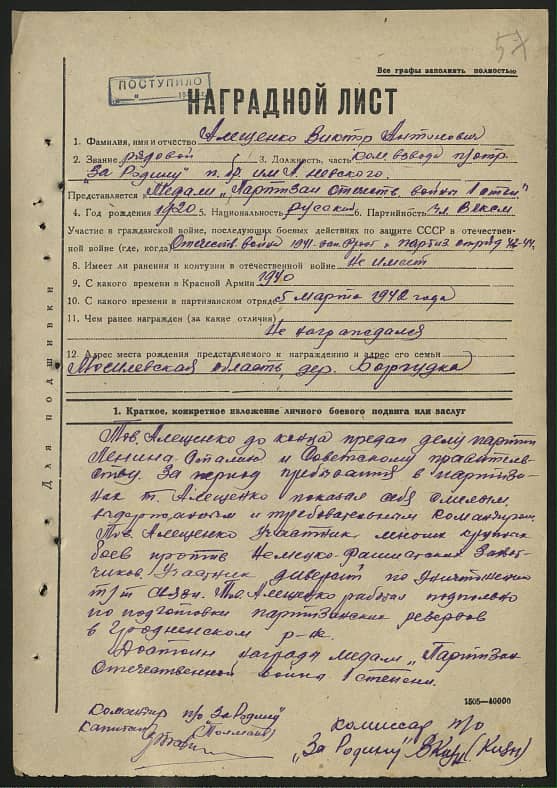 57
Все графы заполнять полностью
ПОСТУПИЛО
НАГРАДНОЙ ЛИСТ
1. Фамилия, имя и отчество Алещенко Виктор Антонович
2. Звание рядовой 3. Должность, часть ком. взвода п/отр.
"За Родину" п. бр. им А. Невского.
Представляется Медали "Партизан отечеств. войны 1 степ."
4. Год рождения 1920 5. Национальность русский 6. Партийность чл ВЛКСМ
Участие в гражданской войне, последующих боевых действиях по защите СССР в отечест-
венной войне (где, когда) Отечеств. война 1941 зап. фронт и партиз отряд 42-44.
8. Имеет ли ранения и контузии в отечественной войне Не имеет
9. С какого времени в Красной Армии 1940
10. С какого времени в партизанском отряде 5 марта 1942 года
11. Чем ранее награжден (за какие отличия)
Не награждался
12. Адрес места рождения представляемого к награждению и адрес его семьи
Могилевская область, дер.
Для подшивки
1. Краткое, конкретное изложение личного боевого подвига или заслуг
Тов. Алещенко до конца предан делу партии
Ленина Сталина и Советскому правитель-
ству. За период пребывания в партиза-
нах т. Алещенко показал себя смелым,
выдержанным и требовательным командиром.
Тов. Алещенко участник многих крупных
боев против Немецко-фашистских захват-
чиков. Участник диверсий по уничтожению
т/т связи. Тов. Алещенко работал подпольно
по подготовки партизанских резервов
в Гродненском р-не.
Достоин награды медали "Партизан
Отечественной войны 1 степени.
1505—40000
Командир п/о "За Родину"
Капитан
Комиссар п/о
"За Родину"